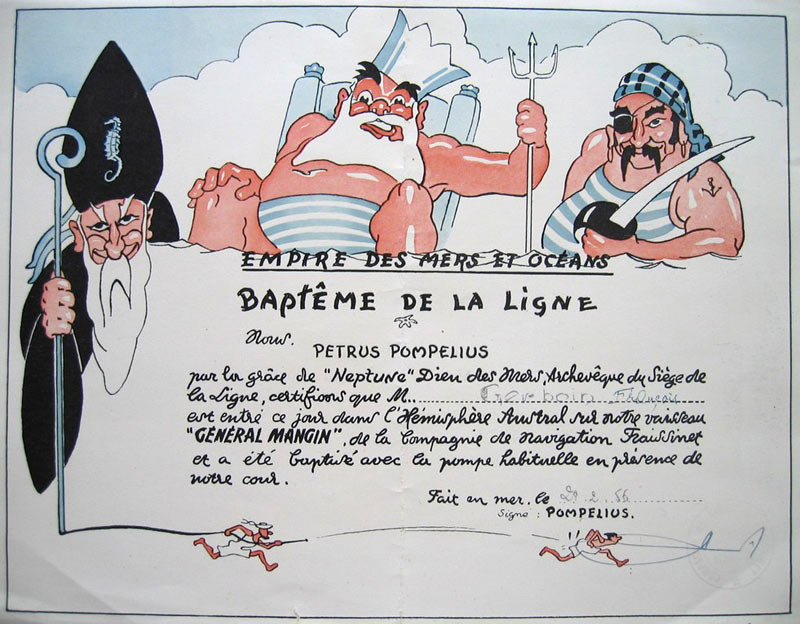 EMPIRE DES MERS ET OCÉANS
BAPTÊME DE LA LIGNE
Nous.
PETRUS POMPELIUS
par la grâce de "NEPTUNE" Dieu des Mers, Archevêque du Siège de
la Ligne, certifions que M.
est entré ce jour dans l'Hémisphère Austral sur notre vaisseau
"GÉNÉRAL MANGIN", de la Compagnie de navigation Fraissinet
et a été baptisé avec la pompe habituelle en présence de
notre cour.
Fait en mer, le 2. 56
Signé : POMPELIUS.